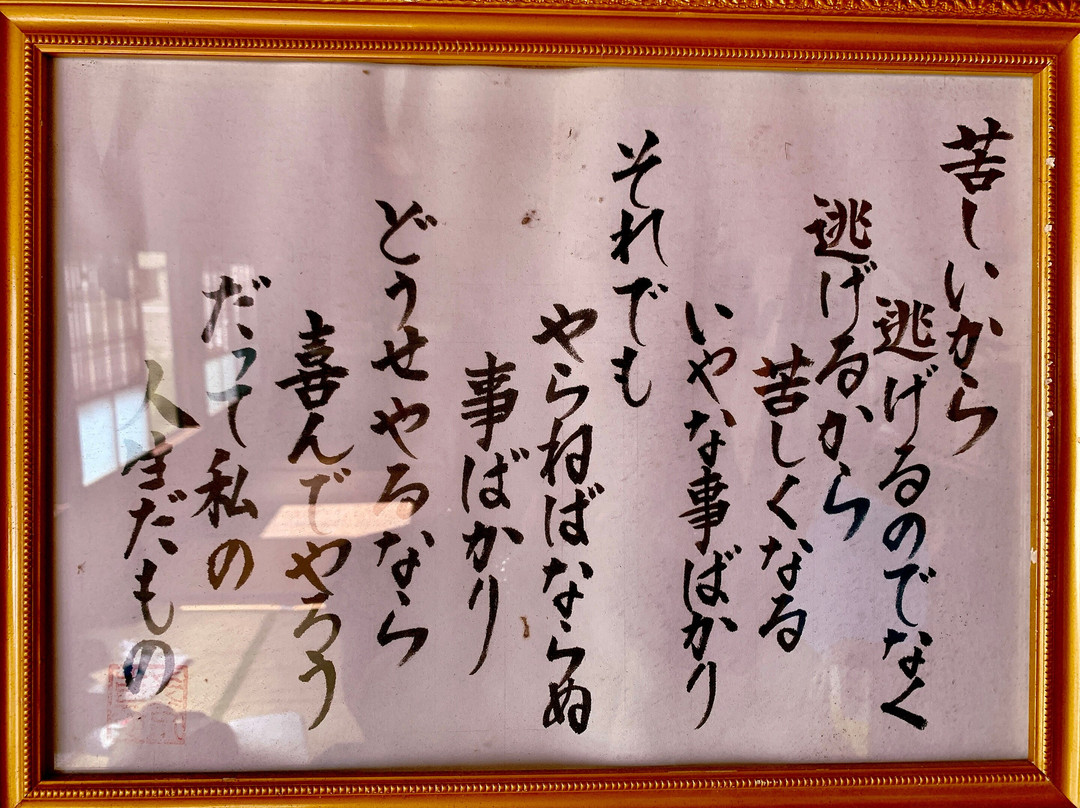 苦しいから
逃げるのでなく
逃げるから
苦しくなる
いやな事ばかり
それでも
やらねばならぬ
事ばかり
どうせやるなら
喜んでやろう
だって私の
人生だもの